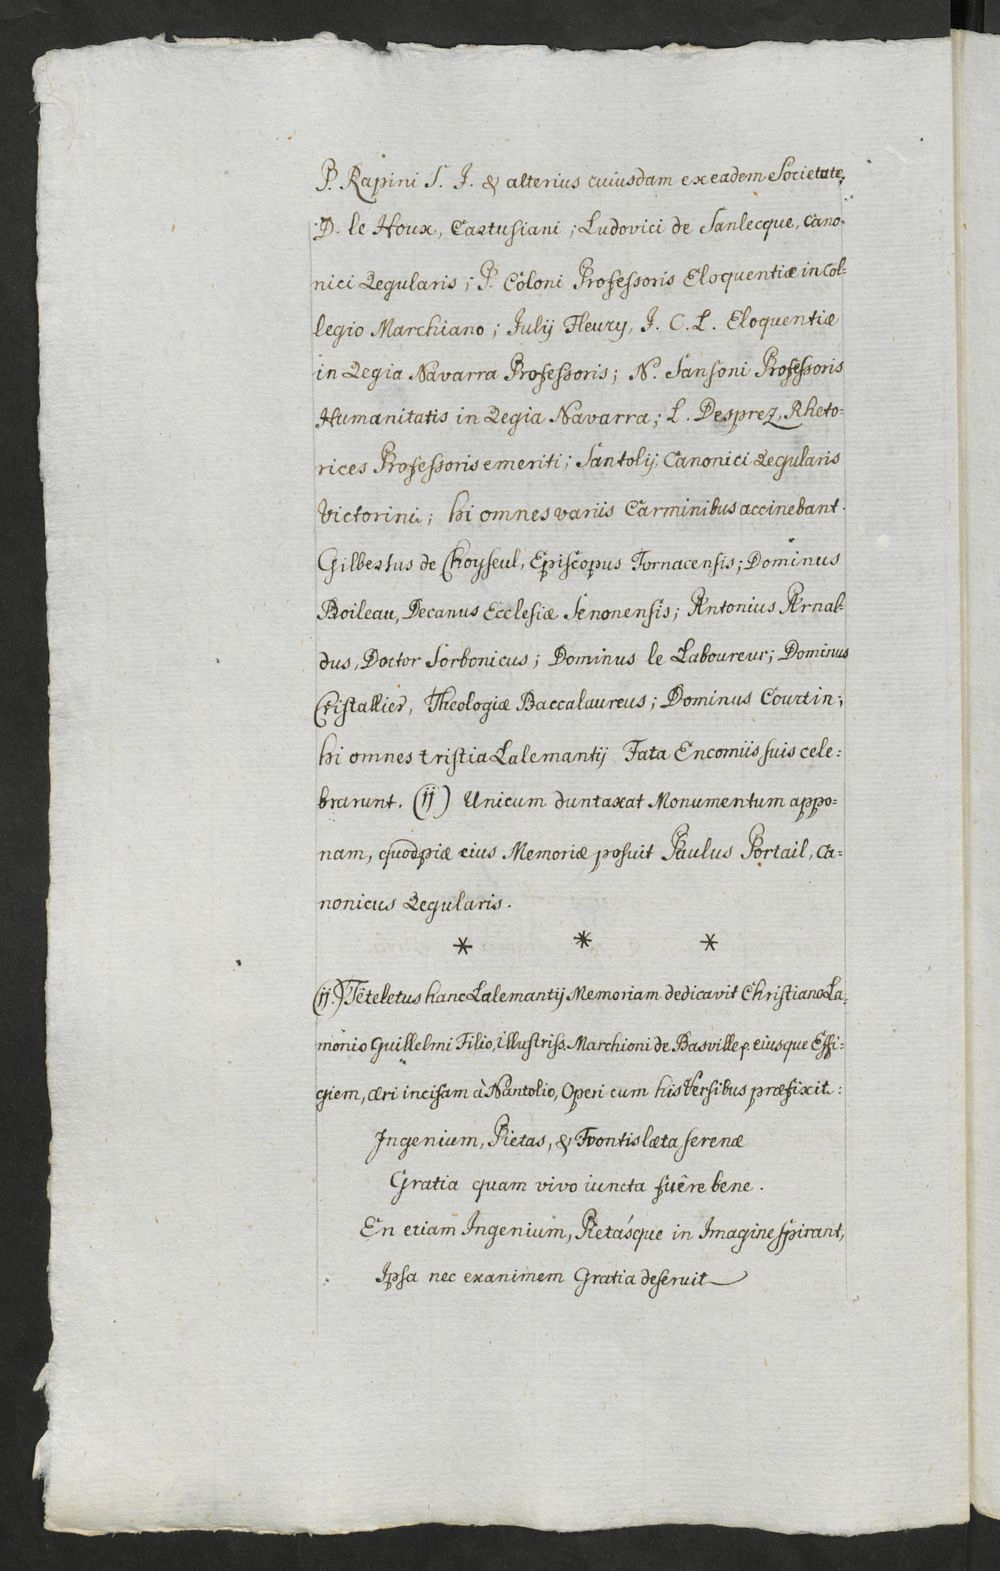 P. Rapini S. J. & alterius cuiusdam ex eadem Societate,
D. le Houx, Cartusiani; Ludovici de Sanlecque, Cano-
nici Regularis; P. Coloni Professoris Eloquentiæ in Col-
legio Marchiano; Julij Fleury, J. C. L. Eloquentiæ
in Regia Navarra Professoris; N. Sansoni Professoris
Humanitatis in Regia Navarra; L. Desprez, Rheto-
rices Professoris emeriti; Santolij Canonici Regularis
Victorini; hi omnes variis Carminibus accinebant.
Gilbertus de Choyseul, Episcopus Tornacensis; Dominus
Boileau, Decanus Ecclesiæ Senonensis; Antonius Arnal-
dus, Doctor Sorbonicus; Dominus le Laboureur; Dominus
Cristallier, Theologiæ Baccalaureus; Dominus Courtin;
hi omnes tristia Lalemantij Fata Encomiis suis cele-
brarunt. (jj) Unicum duntaxat Monumentum appo-
nam, quod piæ eius Memoriæ posuit Paulus Portail, Ca-
nonicus Regularis.
* * *
(jj.) Têteletus hanc Lalemantij Memoriam dedicavit Christiano La-
monio Guillelmi Filio, illustriss. Marchioni de Basville, eiusque Effi-
giem, æri incisam à Nantolio, Operi cum his Versibus præfixit:
Ingenium, Pietas, & Frontis læta serenæ
Gratia quam vivo iuncta fuêre bene.
En etiam Ingenium, Pietásque in Imagine spirant,
Ipsa nec exanimem Gratia deseruit